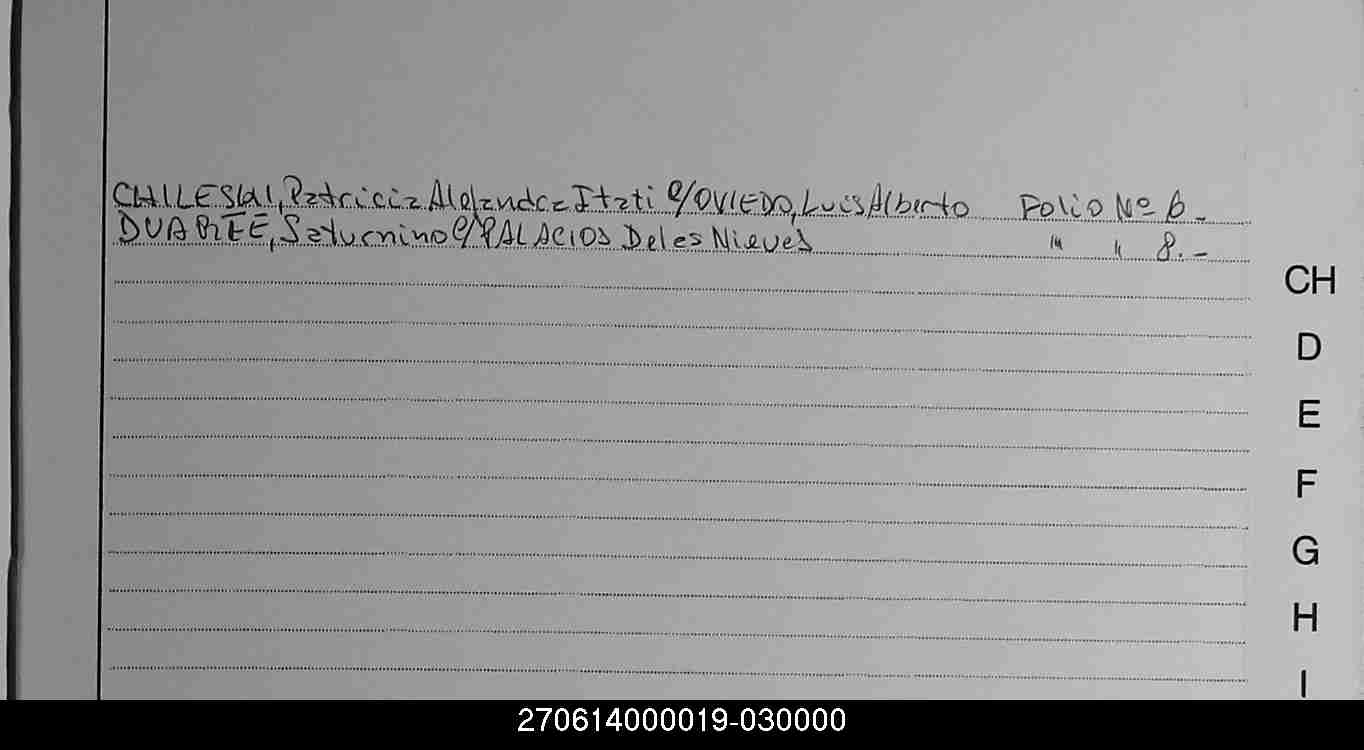 Patricia Alejandra Itati C/OVIEDO, Luis Alberto Folio Nº 6.-
DUARTE, Saturnino C/PALACIOS De les Nieves " " 8.-
CH
D
E
F
G
H
I
270614000019-030000